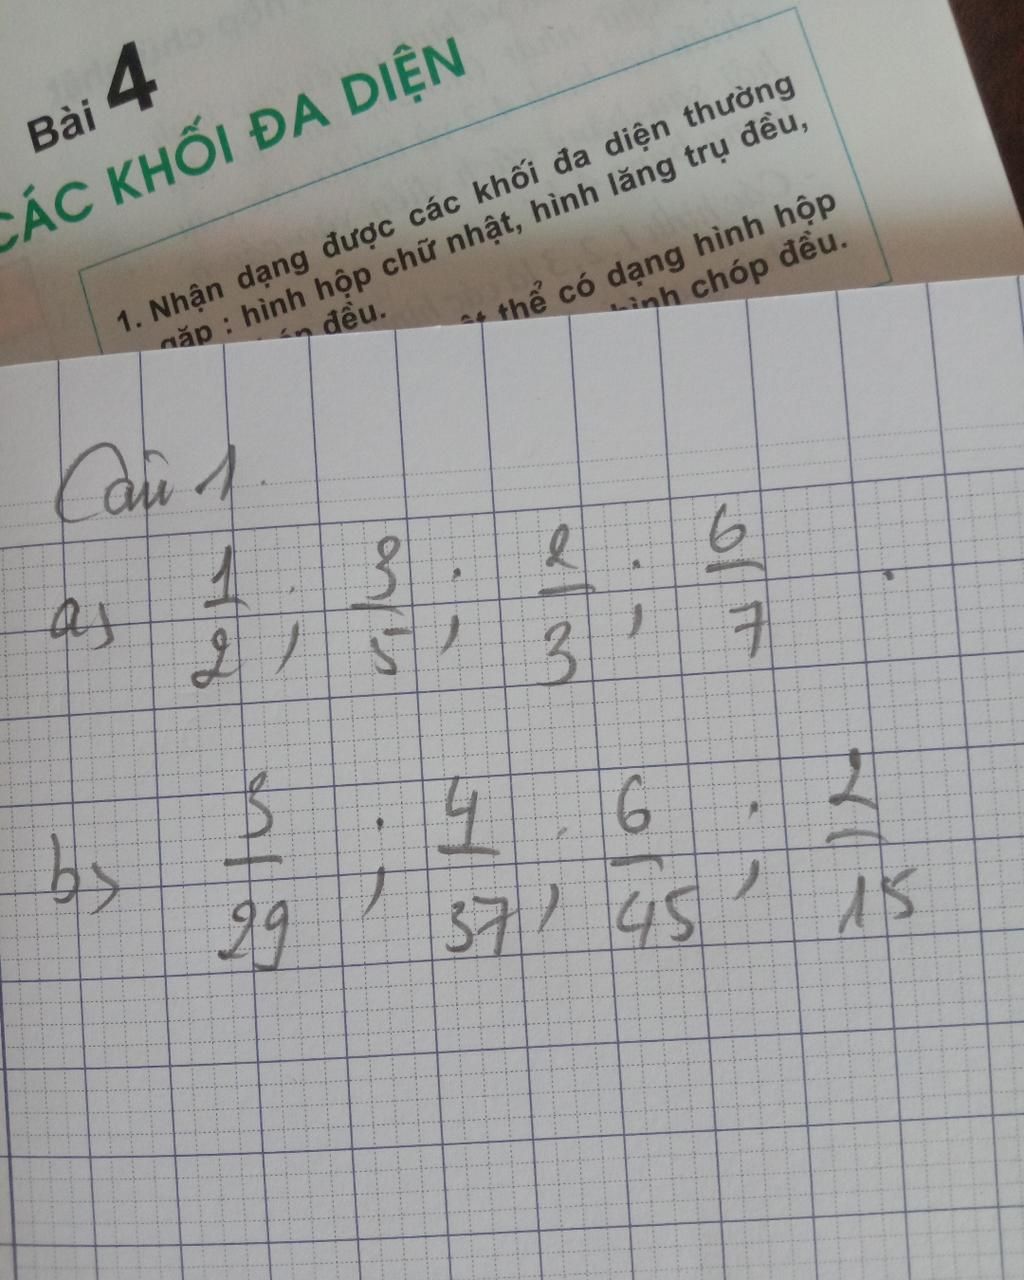 Bài 4
CÁC KHỐI ĐA DIỆN
1. Nhận dạng được các khối đa diện thường
gặp : hình hộp chữ nhật, hình lăng trụ đều,
đều.
thể có dạng hình hộp
hình chóp đều.
Câu 1.
a) 1/2 ; 3/5 ; 2/3 ; 6/7 .
b) 3/29 ; 4/37 ; 6/45 ; 2/15